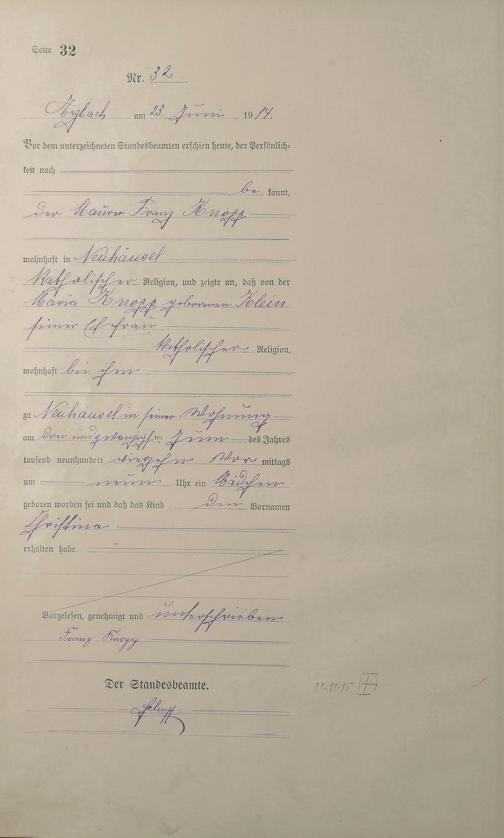 Seite 32
Nr. 32
Arzbach am 23. Juni 1914.
Vor dem unterzeichneten Standesbeamten erschien heute, der Persönlich-
keit nach
be kannt,
der Maurer Franz Knopp
wohnhaft in Neuhäusel
katholischer Religion, und zeigte an, daß von der
Maria Knopp geborenen Klein
seiner Ehefrau
katholischer Religion,
wohnhaft bei ihm
zu Neuhäusel in seiner Wohnung
am drei und zwanzigsten Juni des Jahres
tausend neunhundert vierzehn Vor mittags
um neun Uhr ein Mädchen
geboren worden sei und daß das Kind den Vornamen
Christina
erhalten habe.
Vorgelesen, genehmigt und unterschrieben
Franz Knopp
Der Standesbeamte.